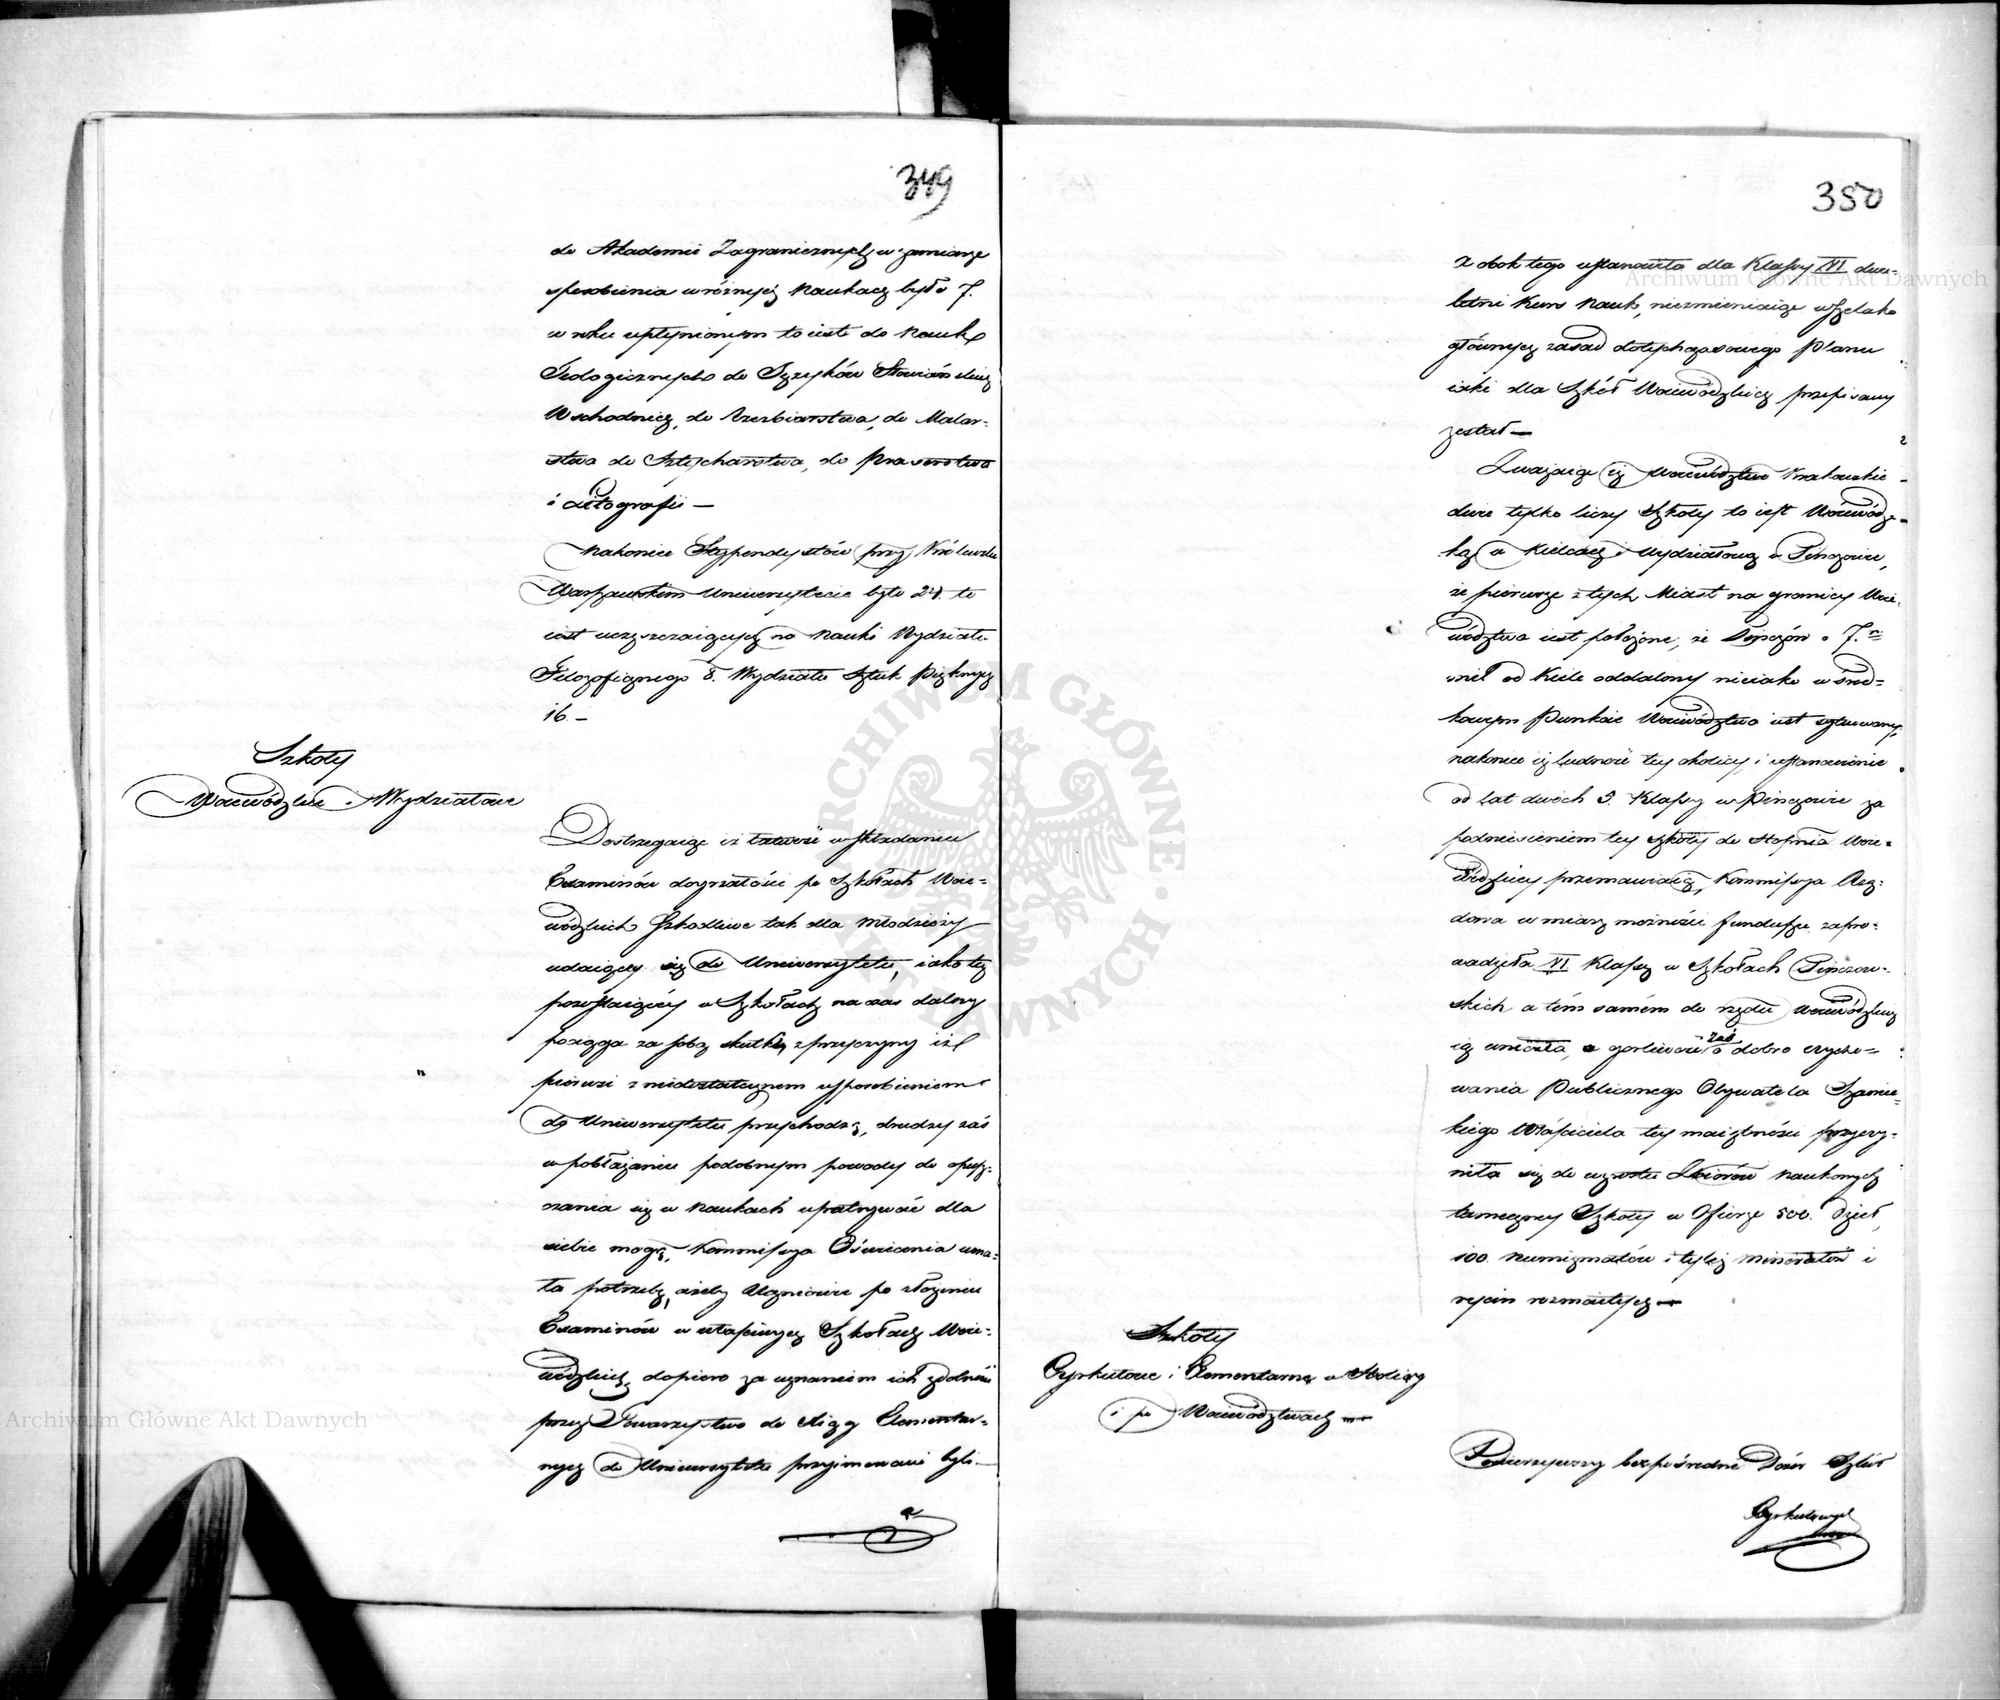 349
do Akademii Zagranicznych w zamiarze
sposobienia w różnych Naukach było 7.
w roku upłynionym to iest do Nauk
Teologicznych do Języków Słowiańskich
Wschodnich, do Rzeźbiarstwa, do Malar-
stwa do Sztycharstwa, do Prawnictwa
i Litografii —
Nakoniec Stypendystów przy Królewsko
Warszawskim Uniwersytecie było 24. to
iest uczęszczaiących na Nauki Wydziału
Filozoficznego 8. Wydziału Sztuk Pięknych
16. —
Szkoły
Woiewódzkie i Wydziałowe
Dostrzegaiąc iż łatwość w składaniu
Examinów doyrzałości po Szkołach Woie-
wódzkich szkodliwe tak dla Młodzieży
udaiącey się do Uniwersytetu, iako też
pozostaiącey w Szkołach na czas dalszy
pociąga za sobą skutki, z przyczyny iż
pierwsi z niedostatecznem usposobieniem
do Uniwersytetu przychodzą, drudzy zaś
w pobłażaniu podobnym powody do opusz-
czania się w Naukach upatrywać dla
siebie mogą, Kommissya Oświecenia uzna-
ła potrzebę, ażeby Uczniowie po złożeniu
Examinów w właściwych Szkołach Woie-
wódzkich, dopiero za uznaniem ich zdolności
przez Towarzystwo do Xiąg Elementar-
nych do Uniwersytetu przyimowani byli —
350
a obok tego ustanowiła dla Klassy VI dwu-
letni Kurs Nauk, niezmieniaiąc wszelako
głównych zasad dotychczasowego Planu
iaki dla Szkół Woiewódzkich przepisany
został —
Zważaiąc iż Woiewództwo Krakowskie
dwie tylko liczy Szkoły to iest Woiewódz-
ką w Kielcach i Wydziałową w Pińczowie,
że pierwsze z tych Miast na granicy Woie-
wództwa iest położone, że Pińczów o 7.
mil od Kielc oddalony nieiako w środ-
kowym Punkcie Woiewództwa iest sytuowany,
nakoniec iż ludność tey okolicy i ustanowienie
od lat dwóch 5. Klassy w Pińczowie za
podniesieniem tey szkoły do Stopnia Woie-
wódzkiey przemawiaią, Kommissya Rzą-
dowa w miarę możności funduszu zapro-
wadziła VI Klassę w Szkołach Pińczow-
skich a tém samém do rzędu Woiewódzkich
ią wniosła, a gorliwość zaś o dobro wycho-
wania Publicznego Obywatela Szaniec-
kiego Właściciela tey maiętności przyczy-
niła się do wzrostu Zbiorów Naukowych
tameczney Szkoły w Ofierze 500. dzieł,
100. Numizmatów i tyleż Minerałów i
rycin rozmaitych —
Szkoły
Cyrkułowe i Elementarne w Stolicy
i po Woiewództwach —
Powierzywszy bezpośredni Dozór Szkół
Cyrkułowych
Archiwum Główne Akt Dawnych
Archiwum Główne Akt Dawnych
ARCHIWUM GŁÓWNE AKT DAWNYCH